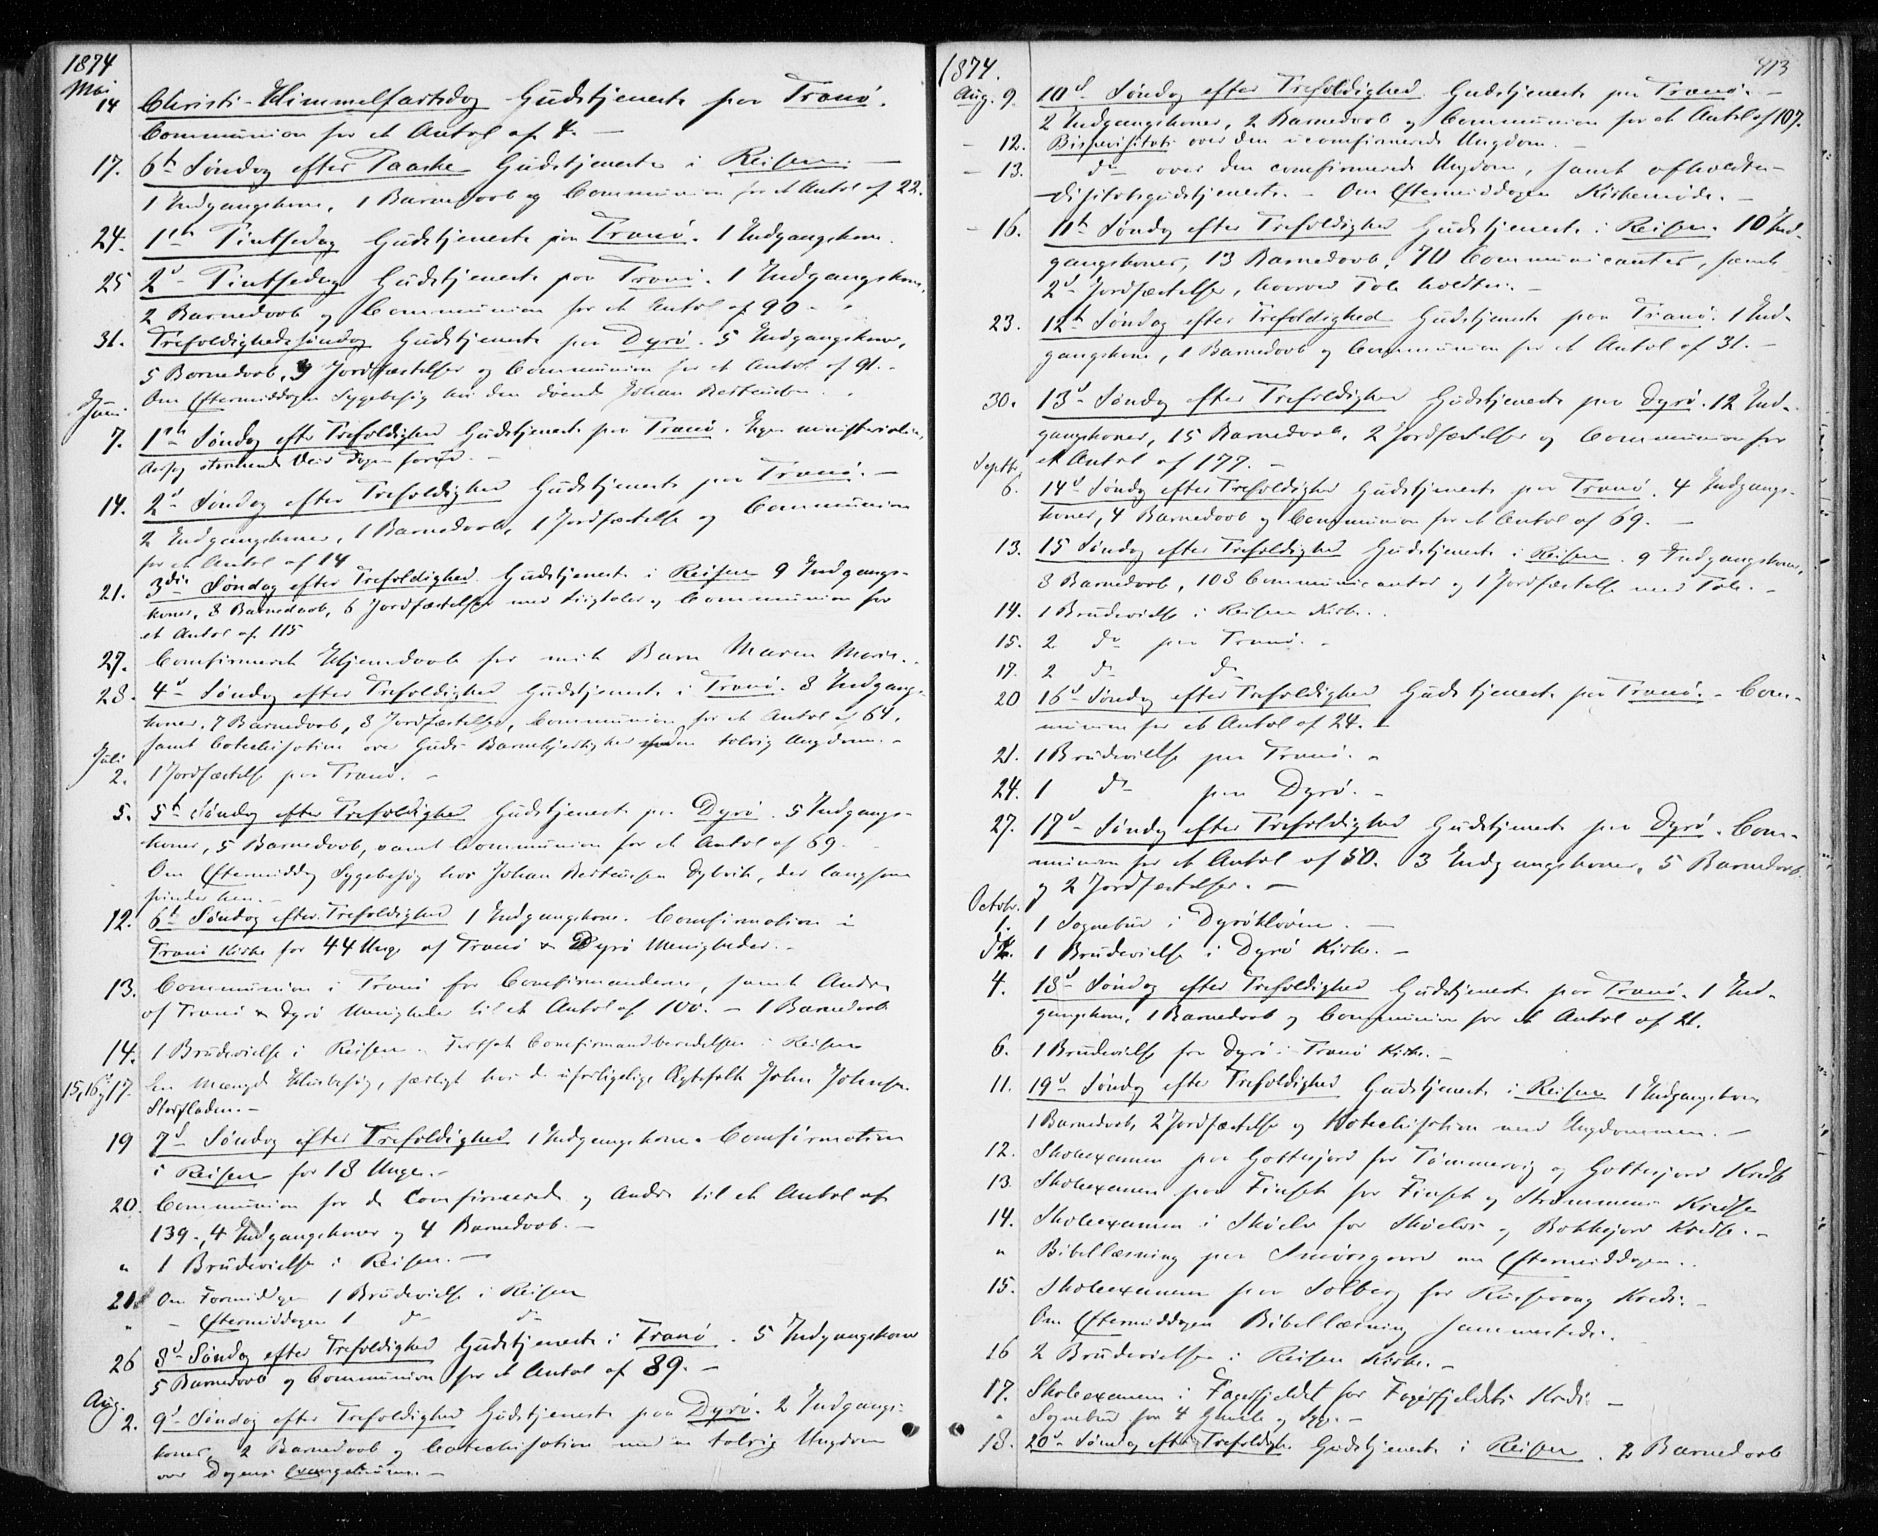 1874
Mai
14 Christi-Himmelfartsdag Gudstjeneste paa Tranø.
Communion for et Antal af 4. –
17. 6te Søndag efter Paaske Gudstjeneste i Reisen. –
1 Indgangskone, 1 Barnedaab og Communion for et Antal af 22.
24. 1ste Pintsedag Gudstjeneste paa Tranø. 1 Indgangskone.
25 2den Pintsedag Gudstjeneste paa Tranø. 1 Indgangskone,
2 Barnedaab og Communion for et Antal af 90 –
31. Trefoldighedssøndag Gudstjeneste paa Dyrø. 5 Indgangskoner,
5 Barnedaab, 3 Jordfæstelser og Communion for et Antal af 91. –
Om Eftermiddagen Sygebesøg hos den døende Johan
Juni
7. 1ste Søndag efter Trefoldighed Gudstjeneste paa Tranø. Ingen
stormende Veir Dagen forud. –
14. 2den Søndag efter Trefoldighed Gudstjeneste paa Tranø. –
2 Indgangskoner, 1 Barnedaab, 1 Jordfæstelse og Communion
for et Antal af 14
21. 3die Søndag efter Trefoldighed. Gudstjeneste i Reisen 9 Indgangs-
koner, 8 Barnedaab, 6 Jordfæstelser med Liigtaler og Communion for
et Antal af 115
27. Comfirmeret Hjemdaab for mit Barn Maren Marie. –
28. 4de Søndag efter Trefoldighed Gudstjeneste i Tranø. 8 Indgangs-
koner, 7 Barnedaab, 3 Jordfæstelser, Communion for et Antal af 64,
samt Catechisation over Guds Barnekjærlighed talrig Ungdom. –
Juli
2. 1 Jordfæstelse paa Tranø. –
5. 5te Søndag efter Trefoldighed Gudstjeneste paa Dyrø. 5 Indgangs-
koner, 5 Barnedaab, samt Communion for et Antal af 69. –
Om Eftermiddag Sygebesøg hos Johan Dybvik, der langsomt
hen. –
12. 6te Søndag efter Trefoldighed 1 Indgangskone. Comfirmation i
Tranø Kirke for 44 Unge af Tranø & Dyrø Menigheder. –
13. Communion i Tranø for Comfirmanderne, samt Andre
af Tranø & Dyrø Menigheder til et Antal af 100. – 1 Barnedaab
14. 1 Brudevielse i Reisen. Fortsat Comfirmandberedelsen i Reisen
15, 16 & 17. En Mængde Huusbesøg, særligt hos de uforligelige Ægtefolk John Johnsen
Storsladen. –
19 7de Søndag efter Trefoldighed 1 Indgangskone. Comfirmation
i Reisen for 18 Unge. –
20. Communion for de Comfirmerede og Andre til et Antal af
139., 4 Indgangskoner og 4 Barnedaab. –
" 1 Brudevielse i Reisen. –
21. Om Formiddagen 1 Brudevielse i Reisen
" – Eftermiddagen 1 do do
26 8de Søndag efter Trefoldighed Gudstjeneste i Tranø. 5 Indgangskoner
5 Barnedaab og Communion for et Antal af 89. –
Aug.
2. 9de Søndag efter Trefoldighed Gudstjeneste paa Dyrø. 2 Indgangs-
koner, 2 Barnedaab og Catechisation med en talrig Ungdom
over Dagens Evangelium. –
1874. 413
Aug. 9. 10de Søndag efter Trefoldighed. Gudstjeneste paa Tranø. –
2 Indgangskoner, 2 Barnedaab og Communion for et Antal af 107.
– 12. Bispevisitats over den ucomfirmerede Ungdom. –
– 13. do over den comfirmerede Ungdom, samt afholdtes
Visitatsgudstjeneste. – Om Eftermiddagen Kirkemøde. –
– 16. 11te Søndag efter Trefoldighed Gudstjeneste i Reisen. 10 Ind-
gangskoner, 13 Barnedaab, 70 Communicanter, samt
2de Jordfæstelser, hvorved Tale holdtes. –
23. 12te Søndag efter Trefoldighed Gudstjeneste paa Tranø. 1 Ind-
gangskone, 1 Barnedaab og Communion for et Antal af 31. –
30. 13de Søndag efter Trefoldighed Gudstjeneste paa Dyrø. 12 Ind-
gangskoner, 15 Barnedaab, 2 Jordfæstelser og Communion for
et Antal af 177. –
Septbr.
6. 14de Søndag efter Trefoldighed Gudstjeneste paa Tranø. 4 Indgangs-
koner, 4 Barnedaab og Communion for et Antal af 69. –
13. 15 Søndag efter Trefoldighed Gudstjeneste i Reisen. 9 Indgangskoner,
8 Barnedaab, 108 Communicanter og 1 Jordfæstelse med Tale. –
14. 1 Brudevielse i Reisen Kirke. –
15. 2 do paa Tranø. –
17. 2 do do
20 16de Søndag efter Trefoldighed Gudstjeneste paa Tranø. – Com-
munion for et Antal af 24. –
21. 1 Brudevielse paa Tranø. –
24. 1 do paa Dyrø. –
27. 17de Søndag efter Trefoldighed Gudstjeneste paa Dyrø. Com-
munion for et Antal af 50. 3 Indgangskoner, 5 Barnedaab
og 2 Jordfæstelser. –
Octobr.
1. 1 Sognebud i Dyrøkloven. –
1 Brudevielse i Dyrø Kirke. –
4. 18de Søndag efter Trefoldighed Gudstjeneste paa Tranø. 1 Ind-
gangskone, 1 Barnedaab og Communion for et Antal af 21.
6. 1 Brudevielse fra Dyrø i Tranø Kirke. –
11. 19de Søndag efter Trefoldighed Gudstjeneste i Reisen 1 Indgangskone
1 Barnedaab, 2 Jordfæstelse og Katechisation med Ungdommen. –
12. Skoleexamen paa Gottesjord for Tømmervig og Gottesjord Kreds
13. Skoleexamen paa Finset for Finset og Strømmens Kredse
14. Skoleexamen i Skøelv for Skøelvs og Bakkejord Kredse. –
" Bibellæsning paa om Eftermiddagen. –
15. Skoleexamen paa Solberg for Kreds. –
Om Eftermiddagen Bibellæsning sammesteds. –
16 2 Brudevielser i Reisen Kirke. –
17. Skoleexamen i Fagerfjeldet for Fagerfjeldets Kreds –
" Sognebud for 4 Gamle og Syge. –
18. 20de Søndag efter Trefoldighed Gudstjeneste i Reisen. 2 Barnedaab